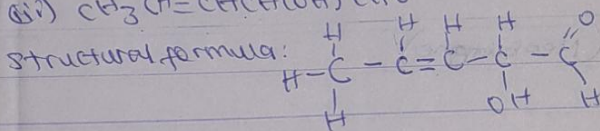 (iii) CH3CH=CHCH(OH)CHO
structural formula:
H H H H O
H-C-C=C-C-C
H OH H